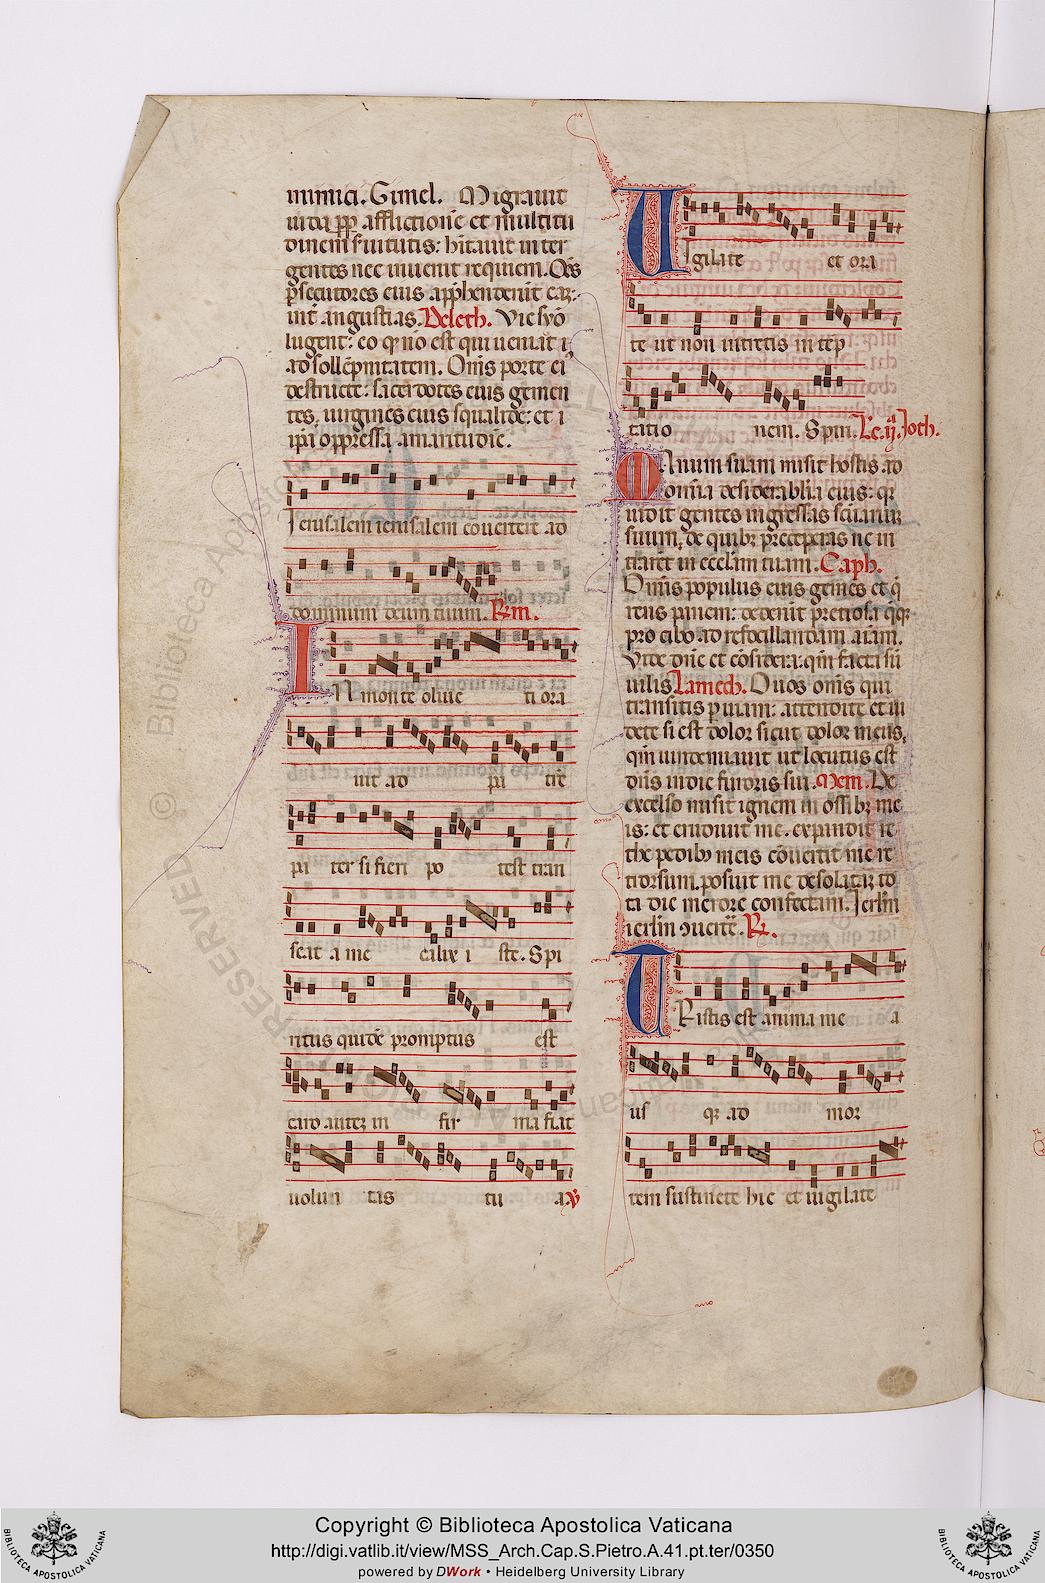 inimici. Gimel. Migravit
iuda ꝓp afflictionē et multitu
dinem ẜuitutis: hītauit inter
gentes nec inuenit requiem. Oēs
ꝑsecutores eius app̄henderūt eaꝫ:
int̄ angustias. Deleth. Vie syō
lugent: eo ꝙ nō est qui ueniat
ad sollēpnitatem. Om̄s porte ei
destructe: sacerdotes eius gemen
tes, uirgines eius squalide: et i
ip̄a opp̄ssa amaritudīe.
Jerusalem ierusalem couertere ad
dominum deum tuum. R̄m.
IN monte oliue ti ora
uit ad pa trē
pa ter si fieri po test tran
seat a me calix i ste. Spi
ritus quidē promptus est
caro auteꝫ in fir ma fiat
uolun tas tu a. ℣
Vigilate et ora
te ut non intretis in tēp
tatio nem. Spirī. Lc̄. ij. Joth.
Manum suam misit hostis ad
omīa desiderabilia eius: qꝫ
uidit gentes ingressas sc̄uariū
suum, de quibꝫ preceperas ne in
trarēt in eccl̄iam tuam. Caph.
Om̄is populus eius gemēs et q̄
rens panem: dederūt preciosa q̄qꝫ
pro cibo ad refocillandam aīam.
Vide dn̄e et cōsidera: qm̄ facta sū
uilis Lamech. O uos om̄s qui
transitis ꝑ uiam: attendite et ui
dete si est dolor sicut dolor meus,
qm̄ uindemiauit ut locutus est
dn̄s in die furoris sui. Mem. De
excelso misit ignem in ossibꝫ me
is: et erudiuit me. expandit re
the pedibꝫ meis cōuertit me re
trorsum. posuit me desolataꝫ to
ta die merore confectam. Jerlm̄
ierlm̄ ꝯuertē. R̄.
TRistis est anima me a
us qꝫ ad mor
tem sustinete hic et uigilate
Copyright © Biblioteca Apostolica Vaticana
http://digi.vatlib.it/view/MSS_Arch.Cap.S.Pietro.A.41.pt.ter/0350
powered by DWork • Heidelberg University Library
BIBLIOTECA APOSTOLICA VATICANA
BIBLIOTECA APOSTOLICA VATICANA